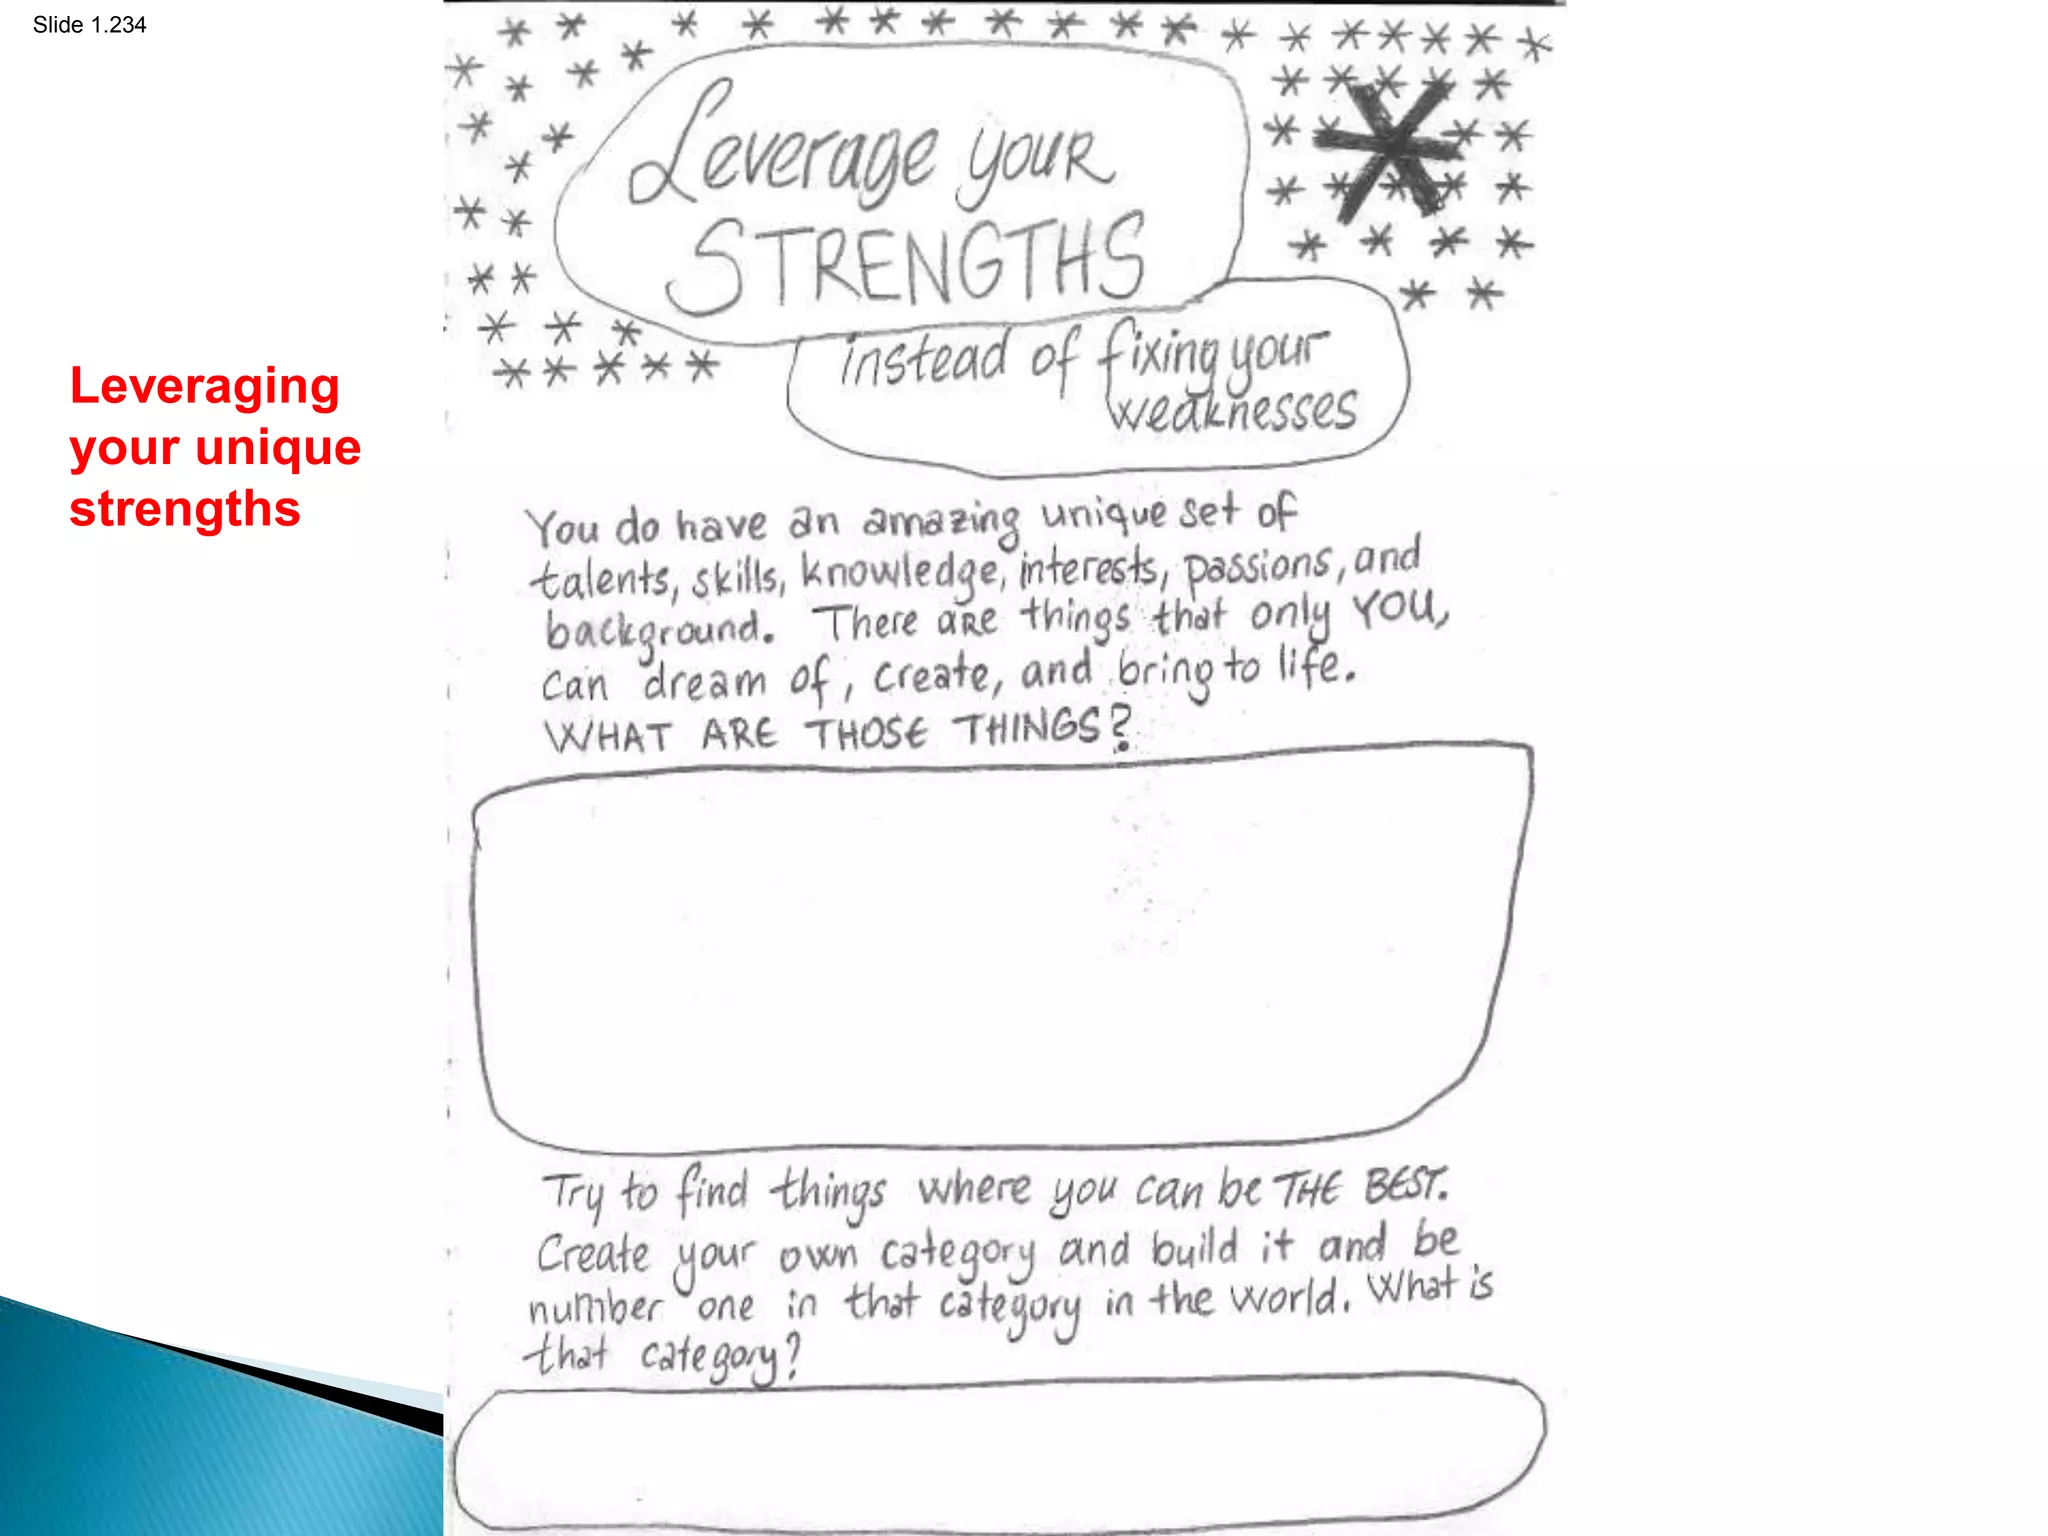 Slide 1.234
Leveraging
your unique
strengths
Leverage your
STRENGTHS
instead of fixing your
weaknesses
You do have an amazing unique set of
talents, skills, knowledge, interests, passions, and
background. There are things that only YOU,
can dream of, create, and bring to life.
WHAT ARE THOSE THINGS?
Try to find things where you can be THE BEST.
Create your own category and build it and be
number one in that category in the world. What is
that category?